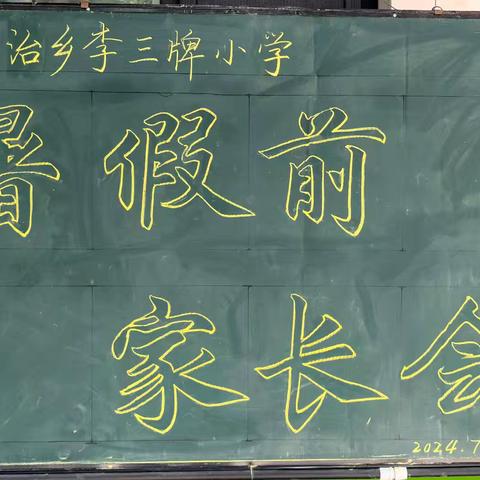 治乡李三牌小学
暑假前
家长会
2024.7